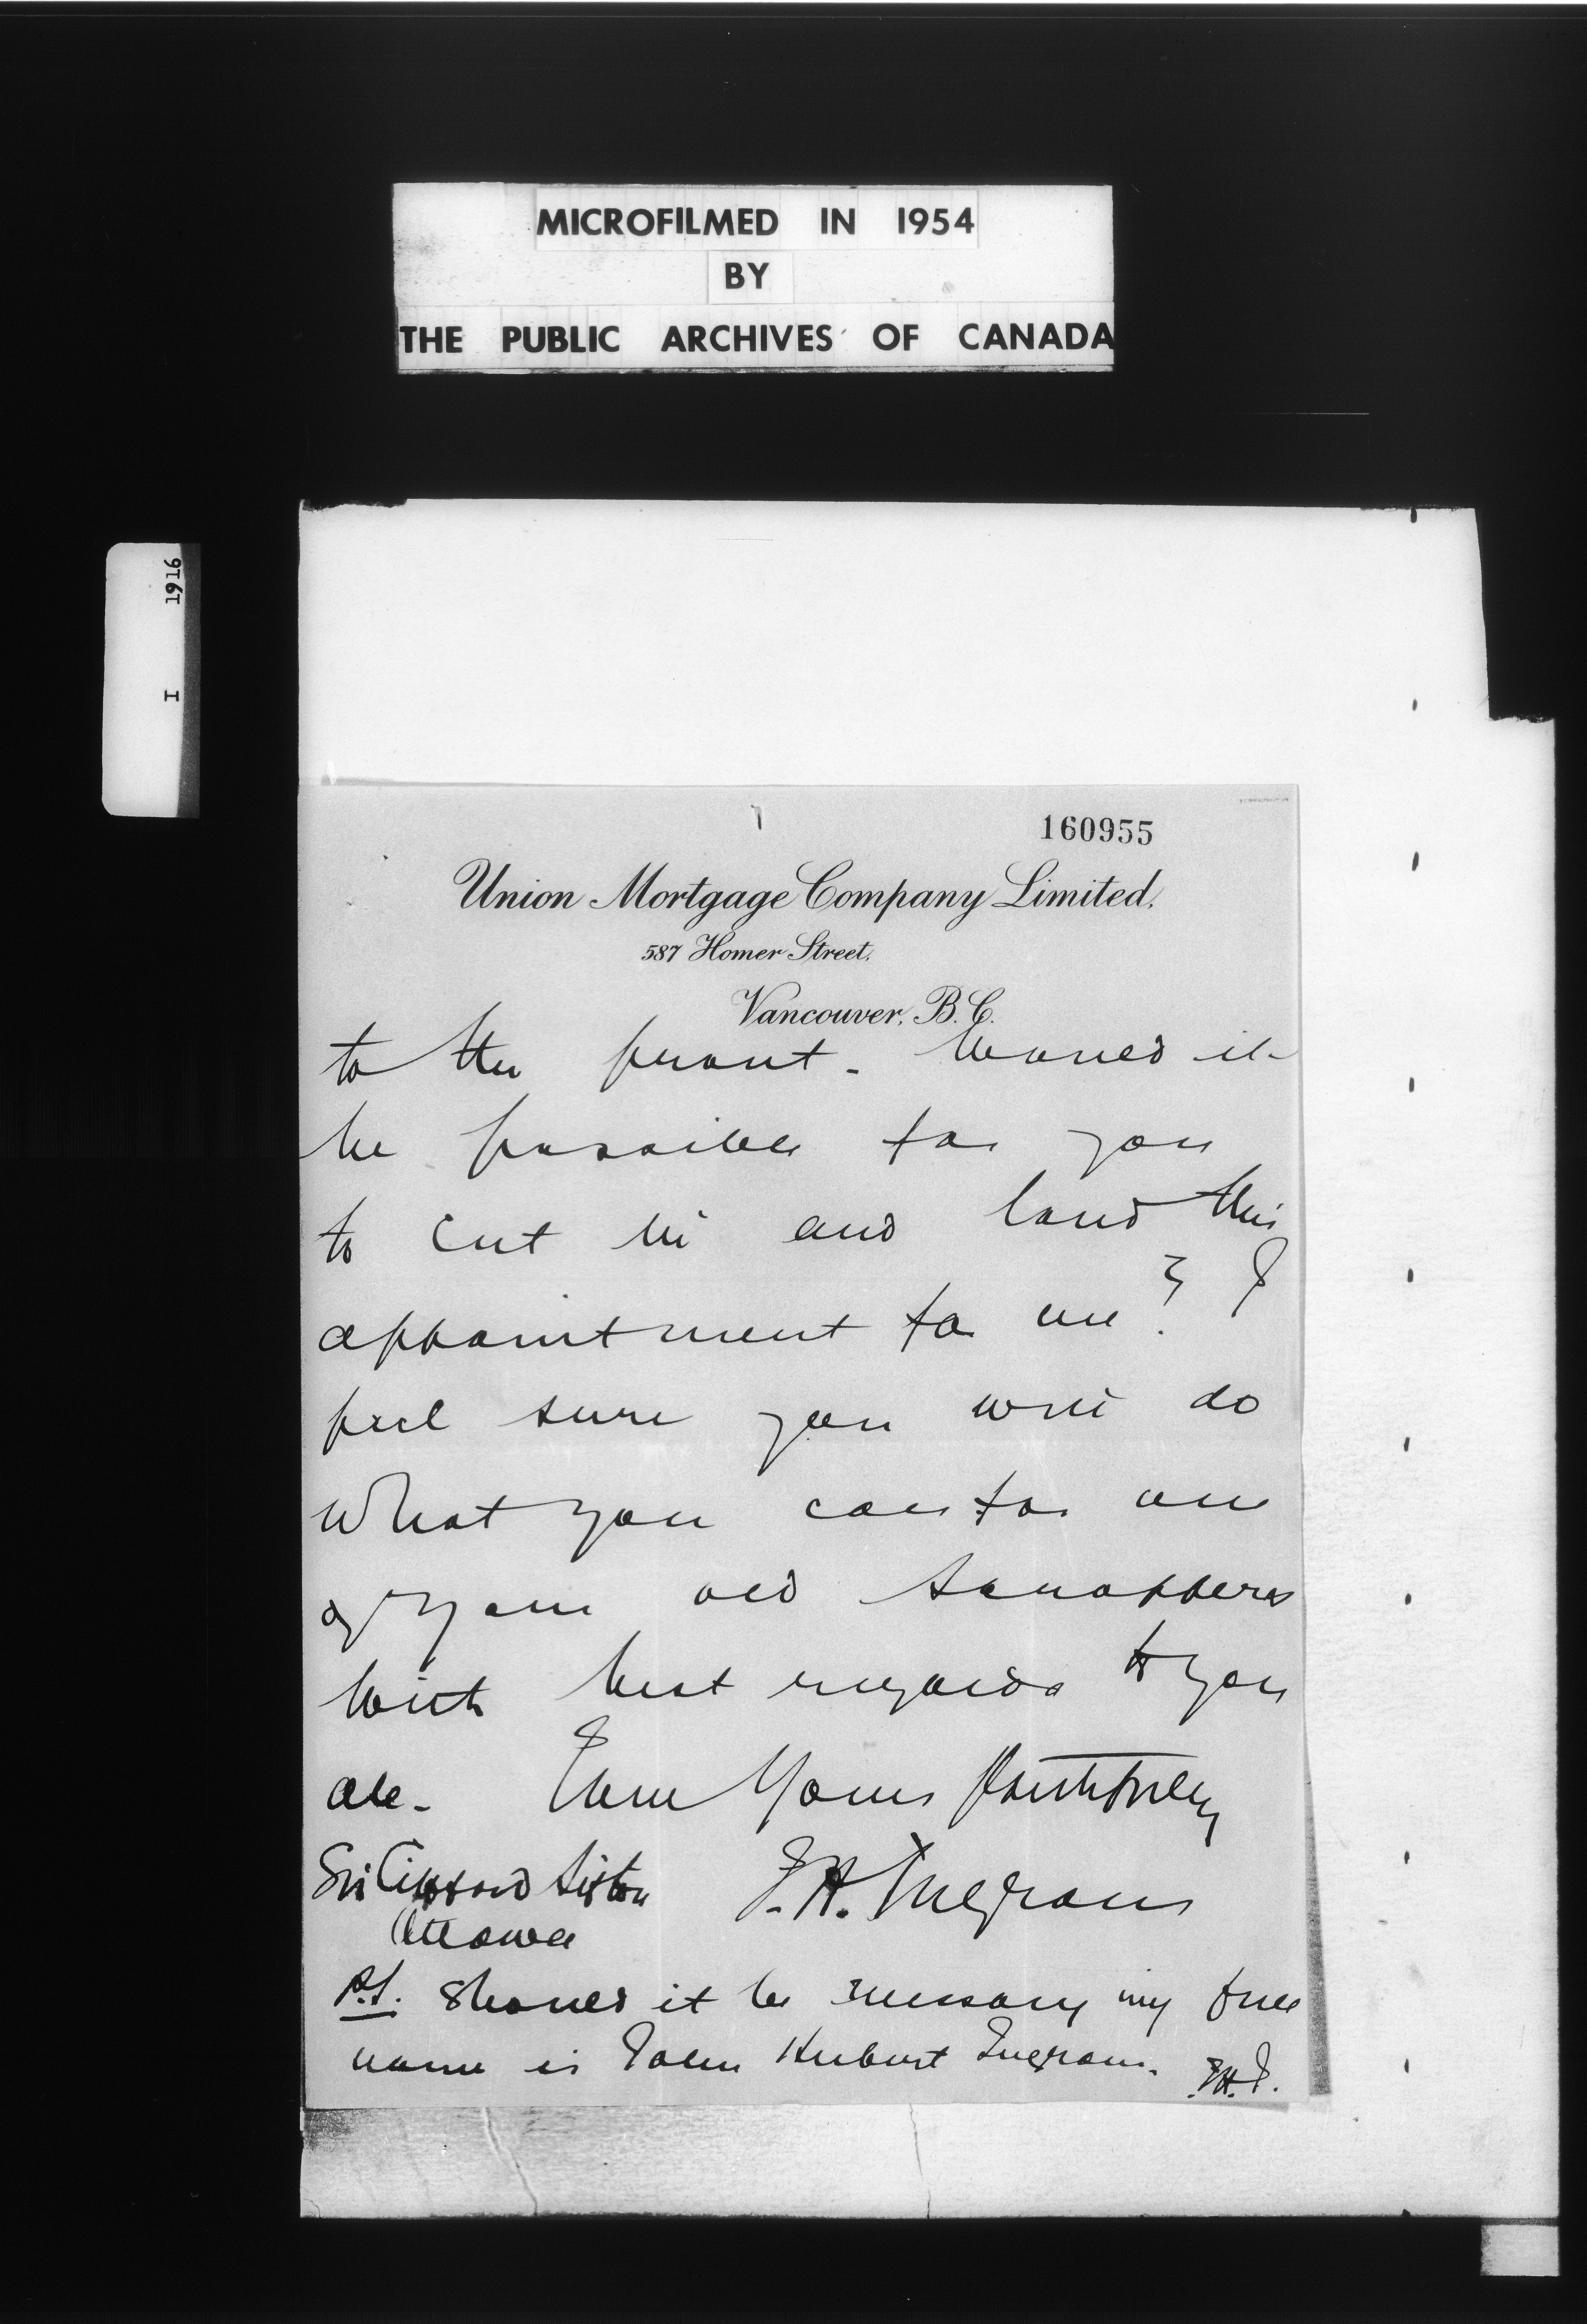 MICROFILMED IN 1954
BY
THE PUBLIC ARCHIVES OF CANADA
I 1916
160955
Union Mortgage Company Limited.
587 Homer Street,
Vancouver, B.C.
to the front. Would it
be possible for you
to cut in and land this
appointment for me? I
feel sure you will do
what you can for one
of your old
With best regards to you
all. Ever Yours Faithfully
Sir Clifford Sifton J.H. Ingram
Ottawa
P.S. Should it be necessary my full
name is John Hubert Ingram. J.H.I.